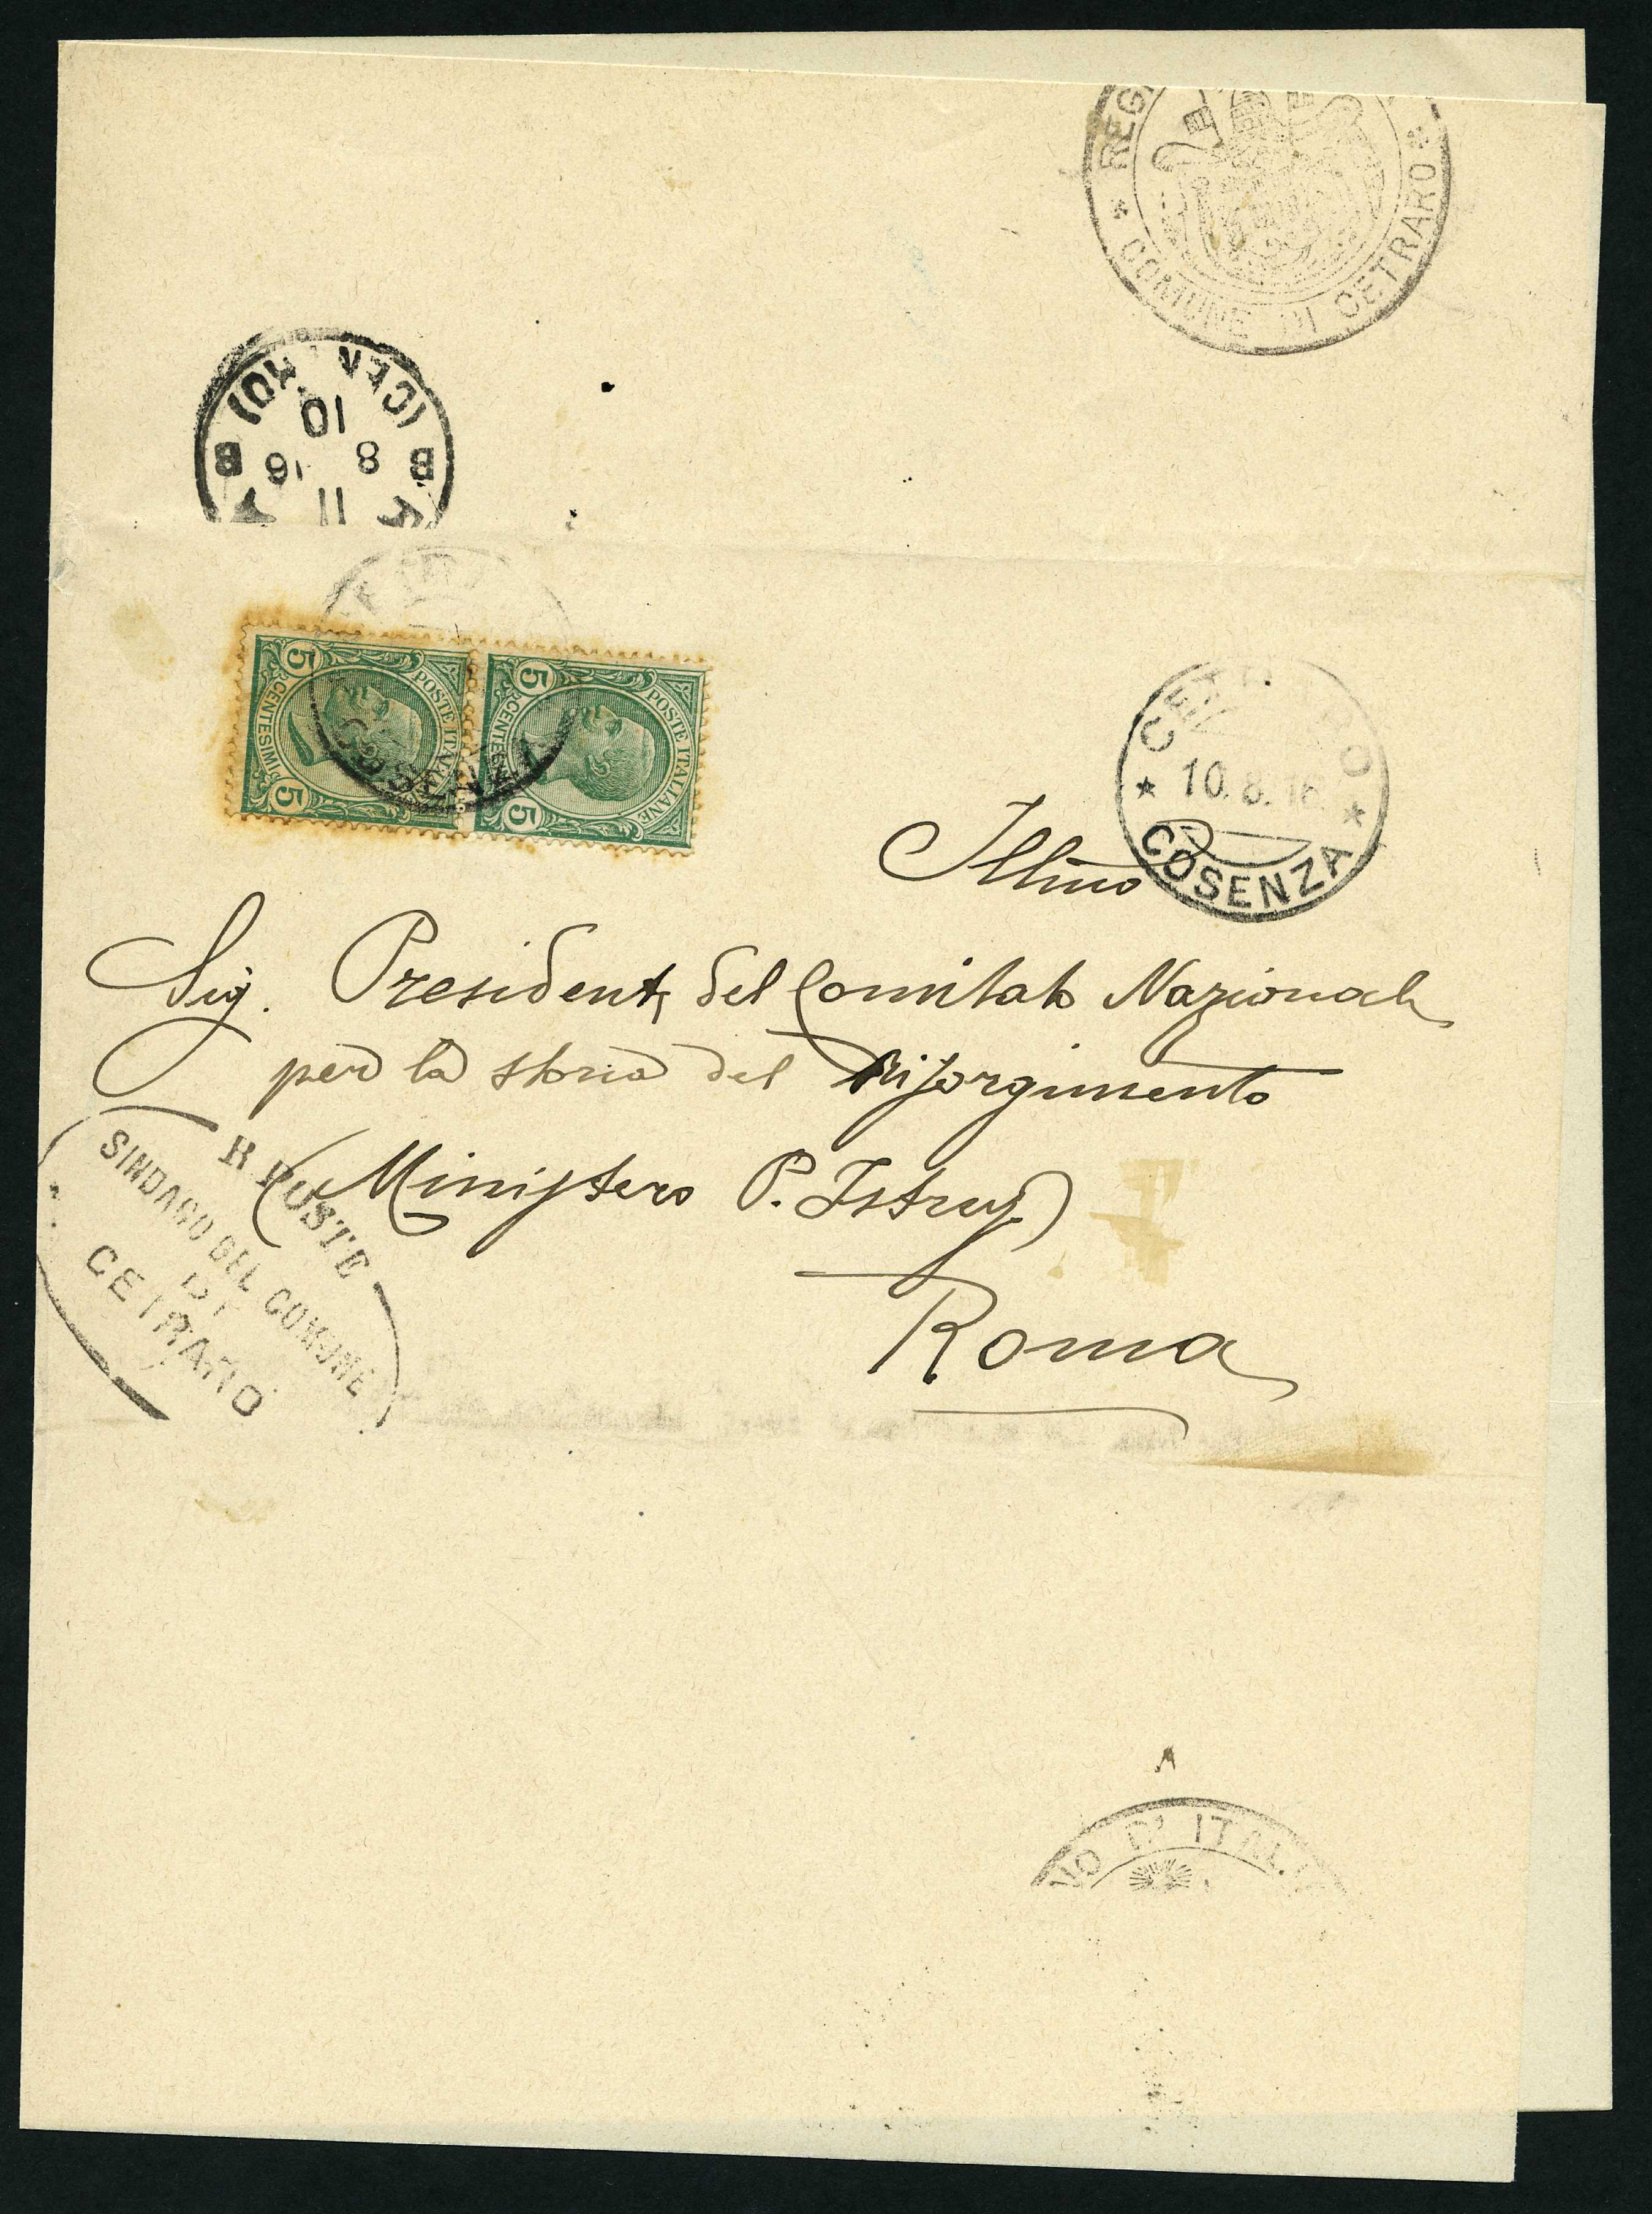 * COMUNE DI CETRARO *
10
8 16
11
B B
POSTE ITALIANE
5 CENTESIMI 5
POSTE ITALIANE
5 5
COSENZA
10.8.16
* *
COSENZA
Illmo
Sig. Presidente del Comitato Nazionale
per la storia del Risorgimento
(Ministero P. Istruz)
Roma
R. POSTE
SINDACO DEL COMUNE
DI
CETRARO
A
NO D'ITALIA